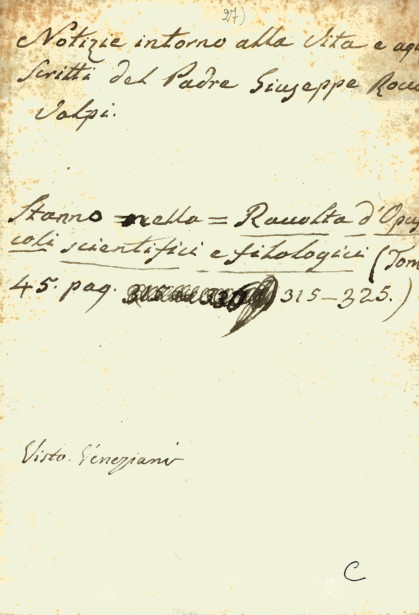 27)
Notizie intorno alla Vita e agli
Scritti del Padre Giuseppe Rocco
Volpi.
Stanno = nella = Raccolta d'Opus
coli scientifici e filologici (Tom.
45. pag. 315–325.)
Visto Veneziani
C